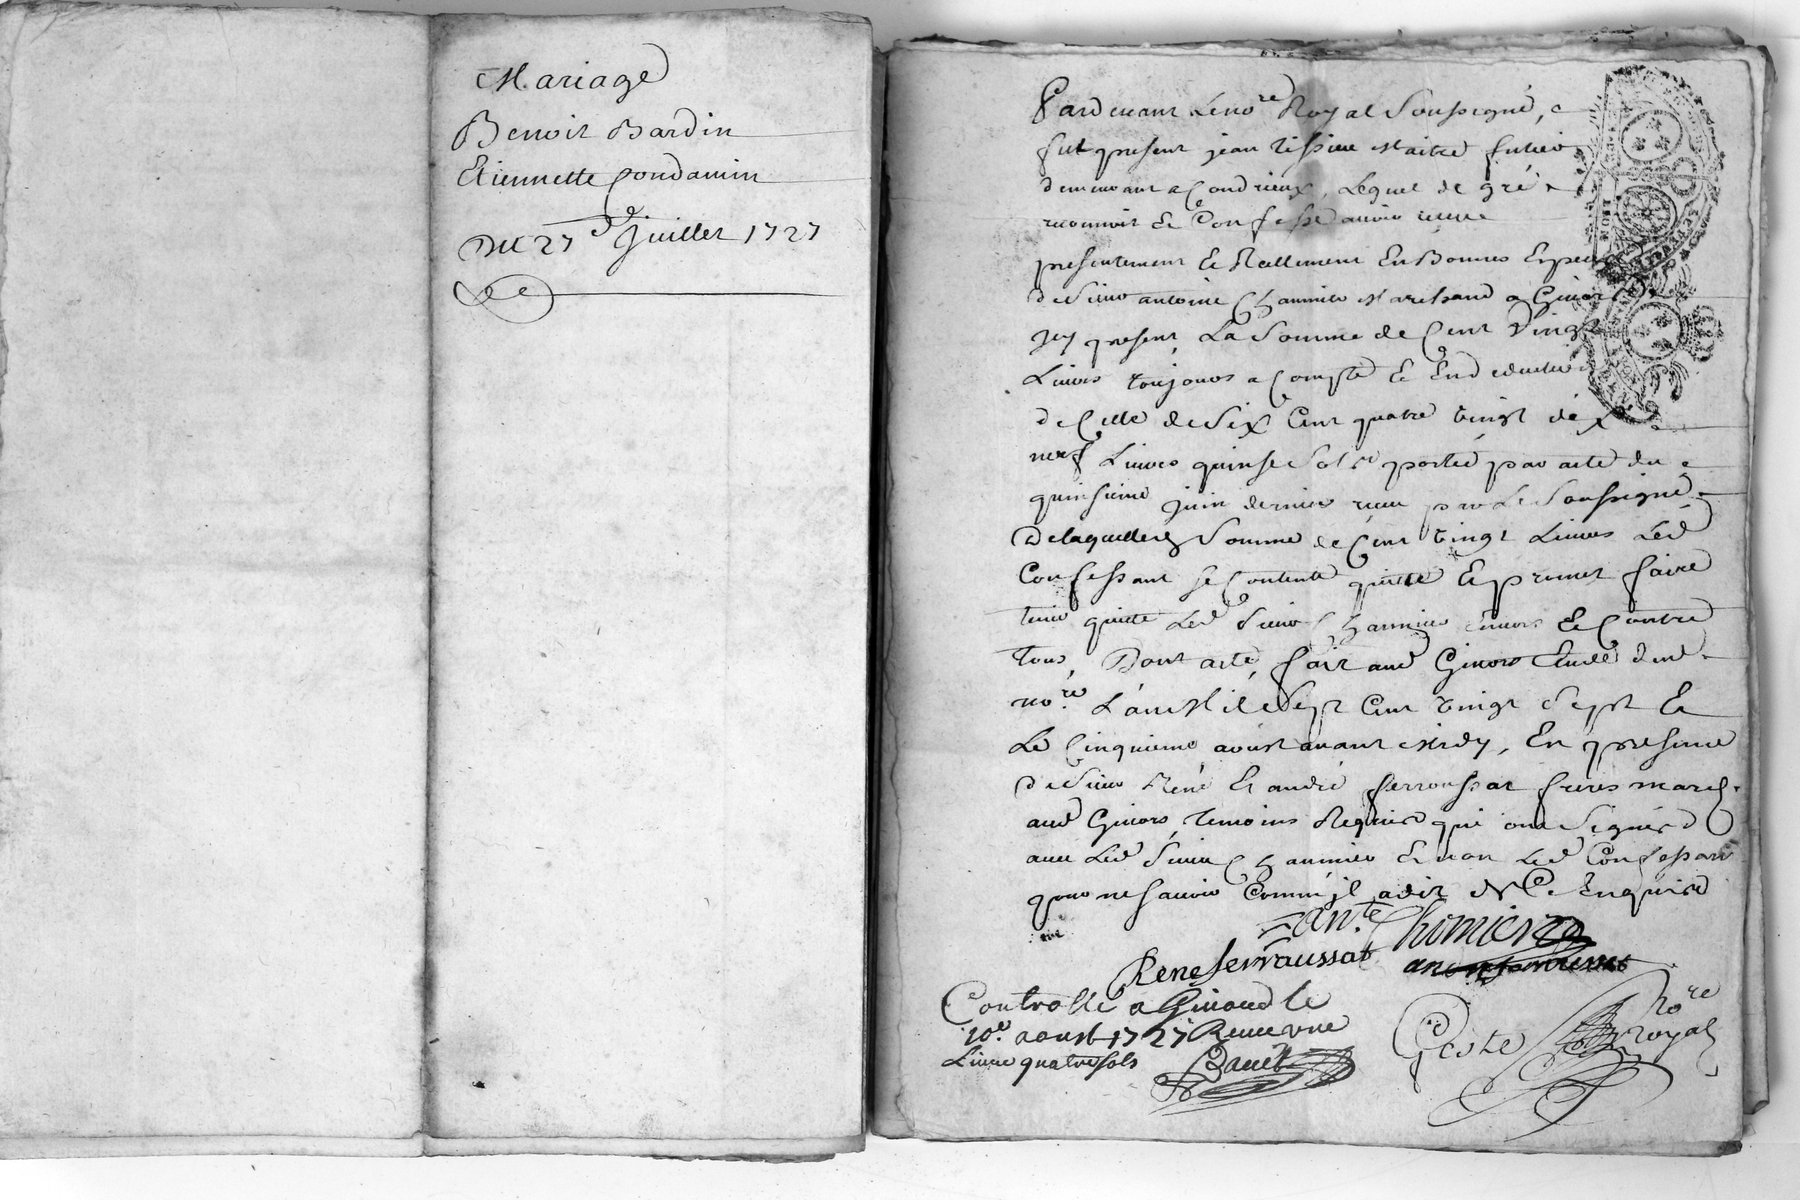 Mariage
Benoit Bardin
Etiennette Condamin
Du 27e Juillet 1727
Pardevant Le nore Royal Soussigné,
fut present jean tissieu Maitre
demeurant a Condrieux, Lequel de gré
reconnoit Et Confesse auoir receu
presentement Et Reellement En Bonnes Especes
de Sieur antoine Chaumier Marchand a Giuors
Jcy present La Somme de Cent Vingt
Liures toujours a Compte Et En deduction
de Celle de Six Cent quatre Vingt dix
neuf Liures quinse Sols portée par acte du
quinsieme juin dernier receu par Le Soussigné
De laquelle Somme de Cent Vingt Liures Led
Confessant se Contente quitte Et promet faire
tenir quitte Led Sieur Chaumier Enuers Et Contre
tous, Dont acte, fait aud Giuors Etude dud
nore. L'an Mil Sept Cent Vingt Sept Et
Le Cinquieme aoust auant Midy, En presence
de Sieur René Et andré ferroussat freres march.
aud Giuors temoins Requis qui ont Signés
auec Led Sieur Chaumier Et non Led Confessant
pour ne Sauoir Comm'jl a dit De Ce Enquis
ant. Chomier
Rene ferraussat
Controllé a Giuord le
10e. aoust 1727 Receu vne
Liure quatre sols
Geste nore
royal